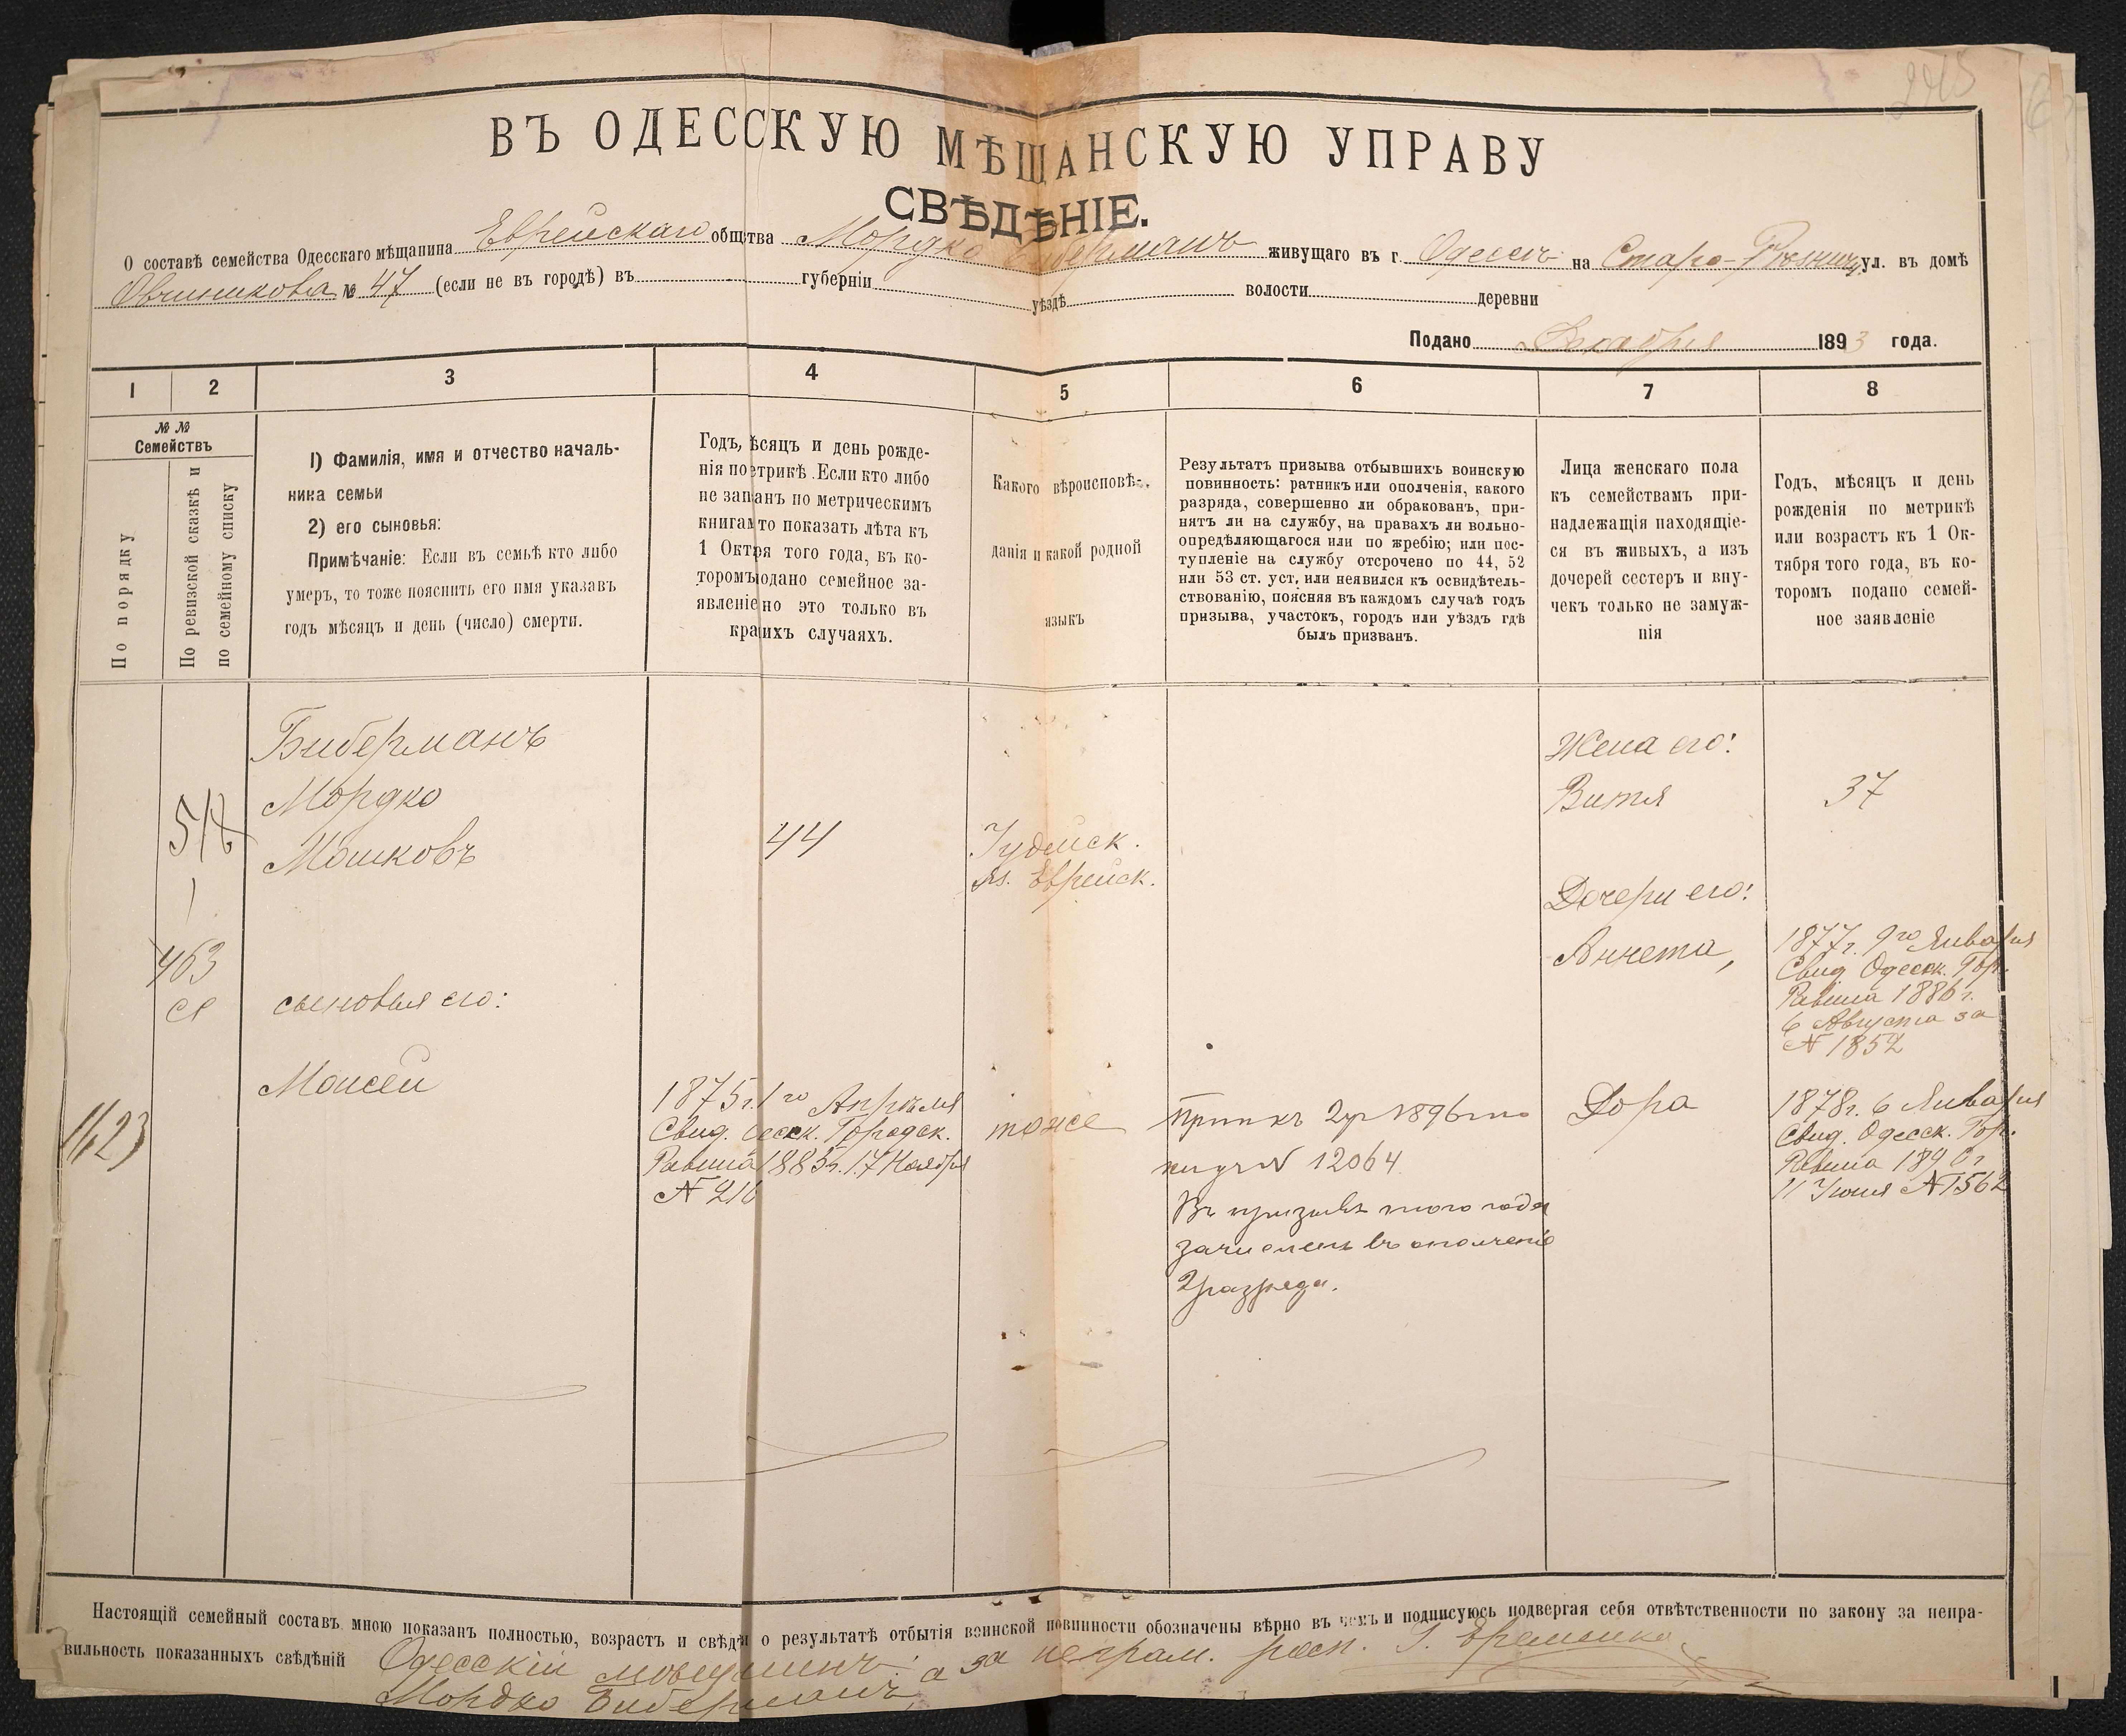 2415
ВЪ ОДЕССКУЮ МѢЩАНСКУЮ УПРАВУ
СВѢДѢНІЕ.
О составѣ семейства Одесскаго мѣщанина Еврейскаго общства Мордко Биберманъ живущаго въ г. Одессѣ на Старо-Рѣзнич. ул. въ домѣ
Овчинникова № 47 (если не въ городѣ) въ губерніи уѣздѣ волости деревни
Подано 1893 года.
1 2 3 4 5 6 7 8
№ №
Семействъ
По порядку
По ревизской сказкѣ и
по семейному списку
1) Фамилія, имя и отчество началь-
ника семьи
2) его сыновья:
Примѣчаніе: Если въ семьѣ кто либо
умеръ, то тоже пояснить его имя указавъ
годъ мѣсяцъ и день (число) смерти.
Годъ, ѣсяцъ и день рожде-
нія по етрикѣ. Если кто либо
не запанъ по метрическимъ
книгамто показать лѣта къ
1 Октря того года, въ ко-
торомъодано семейное за-
явленіено это только въ
краихъ случаяхъ.
Какого вѣроисповѣ-
данія и какой родной
языкъ
Результатъ призыва отбывшихъ воинскую
повинность: ратникъ или ополченія, какого
разряда, совершенно ли обракованъ, при-
нятъ ли на службу, на правахъ ли вольно-
опредѣляющагося или по жребію; или пос-
тупленіе на службу отсрочено по 44, 52
или 53 ст. уст, или неявился къ освидѣтель-
ствованію, поясняя въ каждомъ случаѣ годъ
призыва, участокъ, городъ или уѣздъ гдѣ
былъ призванъ.
Лица женскаго пола
къ семействамъ при-
надлежащія находящіе-
ся въ живыхъ, а изъ
дочерей сестеръ и вну-
чекъ только не замуж-
нія
Годъ, мѣсяцъ и день
рожденія по метрикѣ
или возрастъ къ 1 Ок-
тября того года, въ ко-
торомъ подано семей-
ное заявленіе
Биберманъ
Мордко
Мошковъ
44
Іудейск.
яз. Еврейск.
Жена его:
Витя
37
Дочери его:
Аннета,
1877г. 9го Января
Свид. Одесск. Гор.
Равина 1886 г.
6 Августа за
№ 1852
463
ся
сыновья его:
Моисей
1623
1875г. 1го Апрѣля
Свид. Одесск. Городск.
Равина 1885г. 17 Ноября
№ 216
тоже
12064
Въ призывѣ этого года
зачисленъ въ ополченіе
2 разряда.
Дора
1878г. 6 Января
Свид. Одесск. Гор.
Равина 1890 г.
11 Іюня № 1562
Настоящій семейный составъ мною показанъ полностью, возрастъ и свѣдѣ о результатѣ отбытія воинской повинности обозначены вѣрно въ чемъ и подписуюсь подвергая себя отвѣтственности по закону за непра-
вильность показанныхъ свѣдѣній Одесскій мѣщанинъ: а за неграм. росп. Г. Еременко
Мордко Биберманъ,